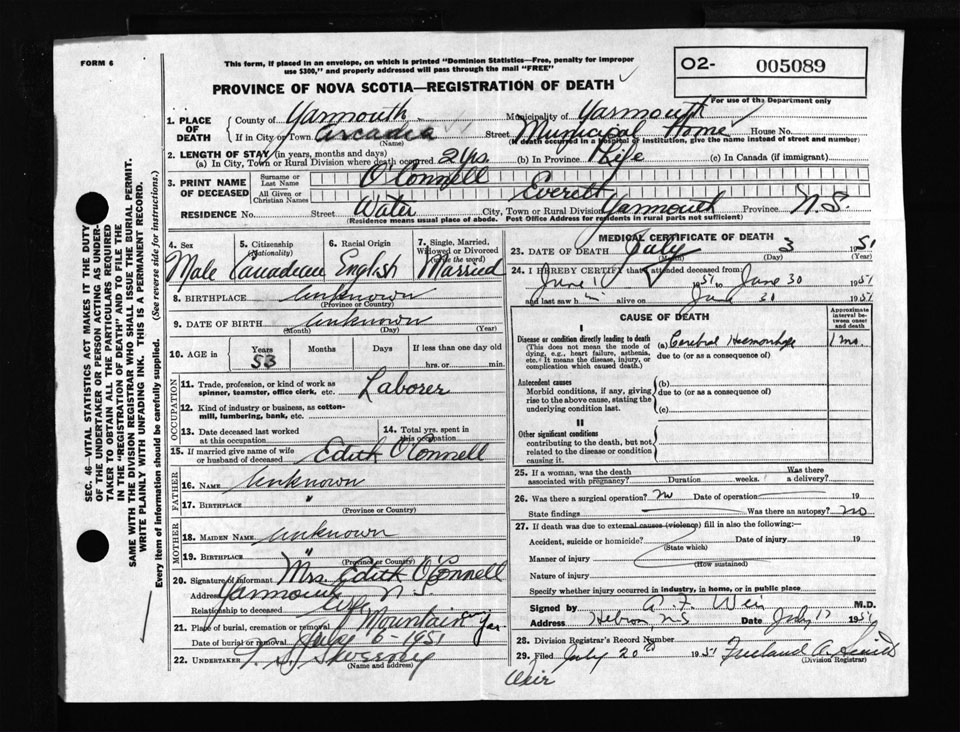 FORM 6
This form, if placed in an envelope, on which is printed "Dominion Statistics—Free, penalty for improper
use $300," and properly addressed will pass through the mail "FREE"
O2- 005089
PROVINCE OF NOVA SCOTIA—REGISTRATION OF DEATH
For use the Department only
1. PLACE OF DEATH County of Yarmouth Municipality of Yarmouth
If in City or Town Arcadia (Name) Street Municipal Home House No.
(If death occurred in a hospital or institution, give the name instead of street and number)
2. LENGTH OF STAY (in years, months and days)
(a) In City, Town or Rural Division where death occurred 2 yrs. (b) In Province Life (c) In Canada (if immigrant)
3. PRINT NAME OF DECEASED Surname or Last Name O'Connell
All Given or Christian Names Everett
RESIDENCE No. Street Water City, Town or Rural Division Yarmouth Province N.S.
(Residence means usual place of abode. Post Office Address for residents in rural parts not sufficient)
4. Sex Male
5. Citizenship (Nationality) Canadian
6. Racial Origin English
7. Single, Married, Widowed or Divorced (write the word) Married
8. BIRTHPLACE Unknown
(Province or Country)
9. DATE OF BIRTH Unknown
(Month) (Day) (Year)
10. AGE in Years 53 Months Days If less than one day old
hrs. or min.
OCCUPATION
11. Trade, profession, or kind of work as
spinner, teamster, office clerk, etc. Laborer
12. Kind of industry or business, as cotton-
mill, lumbering, bank, etc.
13. Date deceased last worked
at this occupation
14. Total yrs. spent in
this occupation
15. If married give name of wife
or husband of deceased Edith O'Connell
FATHER
16. NAME Unknown
17. BIRTHPLACE "
(Province or Country)
MOTHER
18. MAIDEN NAME Unknown
19. BIRTHPLACE "
(Province or Country)
20. Signature of informant Mrs. Edith O'Connell
Address Yarmouth N.S.
Relationship to deceased Wife
21. Place of burial, cremation or removal Mountain Yar.
Date of burial or removal 6 - 1951
22. UNDERTAKER
(Name and address)
MEDICAL CERTIFICATE OF DEATH
23. DATE OF DEATH July 3 1951
(Month) (Day) (Year)
24. I HEREBY CERTIFY that I attended deceased from:
June 1 1951 June 30 1951
and last saw him alive on June 31 1951
CAUSE OF DEATH
Approximate interval between onset and death
I
Disease or condition directly leading to death
(This does not mean the mode of
dying, e.g., heart failure, asthenia,
etc. It means the disease, injury, or
complication which caused death.)
(a) Cerebral Haemorrhage 1 mo.
due to (or as a consequence of)
Antecedent causes
Morbid conditions, if any, giving
rise to the above cause, stating the
underlying condition last.
(b)
due to (or as a consequence of)
(c)
II
Other significant conditions
contributing to the death, but not
related to the disease or condition
causing it.
25. If a woman, was the death
associated with pregnancy? Duration weeks. Was there
a delivery?
26. Was there a surgical operation? no Date of operation 19
State findings Was there an autopsy? no
27. If death was due to external causes (violence) fill in also the following:—
Accident, suicide or homicide? Date of injury 19
(State which)
Manner of injury
(How sustained)
Nature of injury
Specify whether injury occurred in industry, in home, or in public place
Signed by A. F. Weir M.D.
Address Hebron N.S Date July 17 1951
28. Division Registrar's Record Number
29. Filed July 20th 1951
(Division Registrar)
Weir
SEC. 46—VITAL STATISTICS ACT MAKES IT THE DUTY
OF THE UNDERTAKER OR PERSON ACTING AS UNDER-
TAKER TO OBTAIN ALL THE PARTICULARS REQUIRED
IN THE "REGISTRATION OF DEATH" AND TO FILE THE
SAME WITH THE DIVISION REGISTRAR WHO SHALL ISSUE THE BURIAL PERMIT.
WRITE PLAINLY WITH UNFADING INK. THIS IS A PERMANENT RECORD.
Every item of information should be carefully supplied. (See reverse side for instructions.)